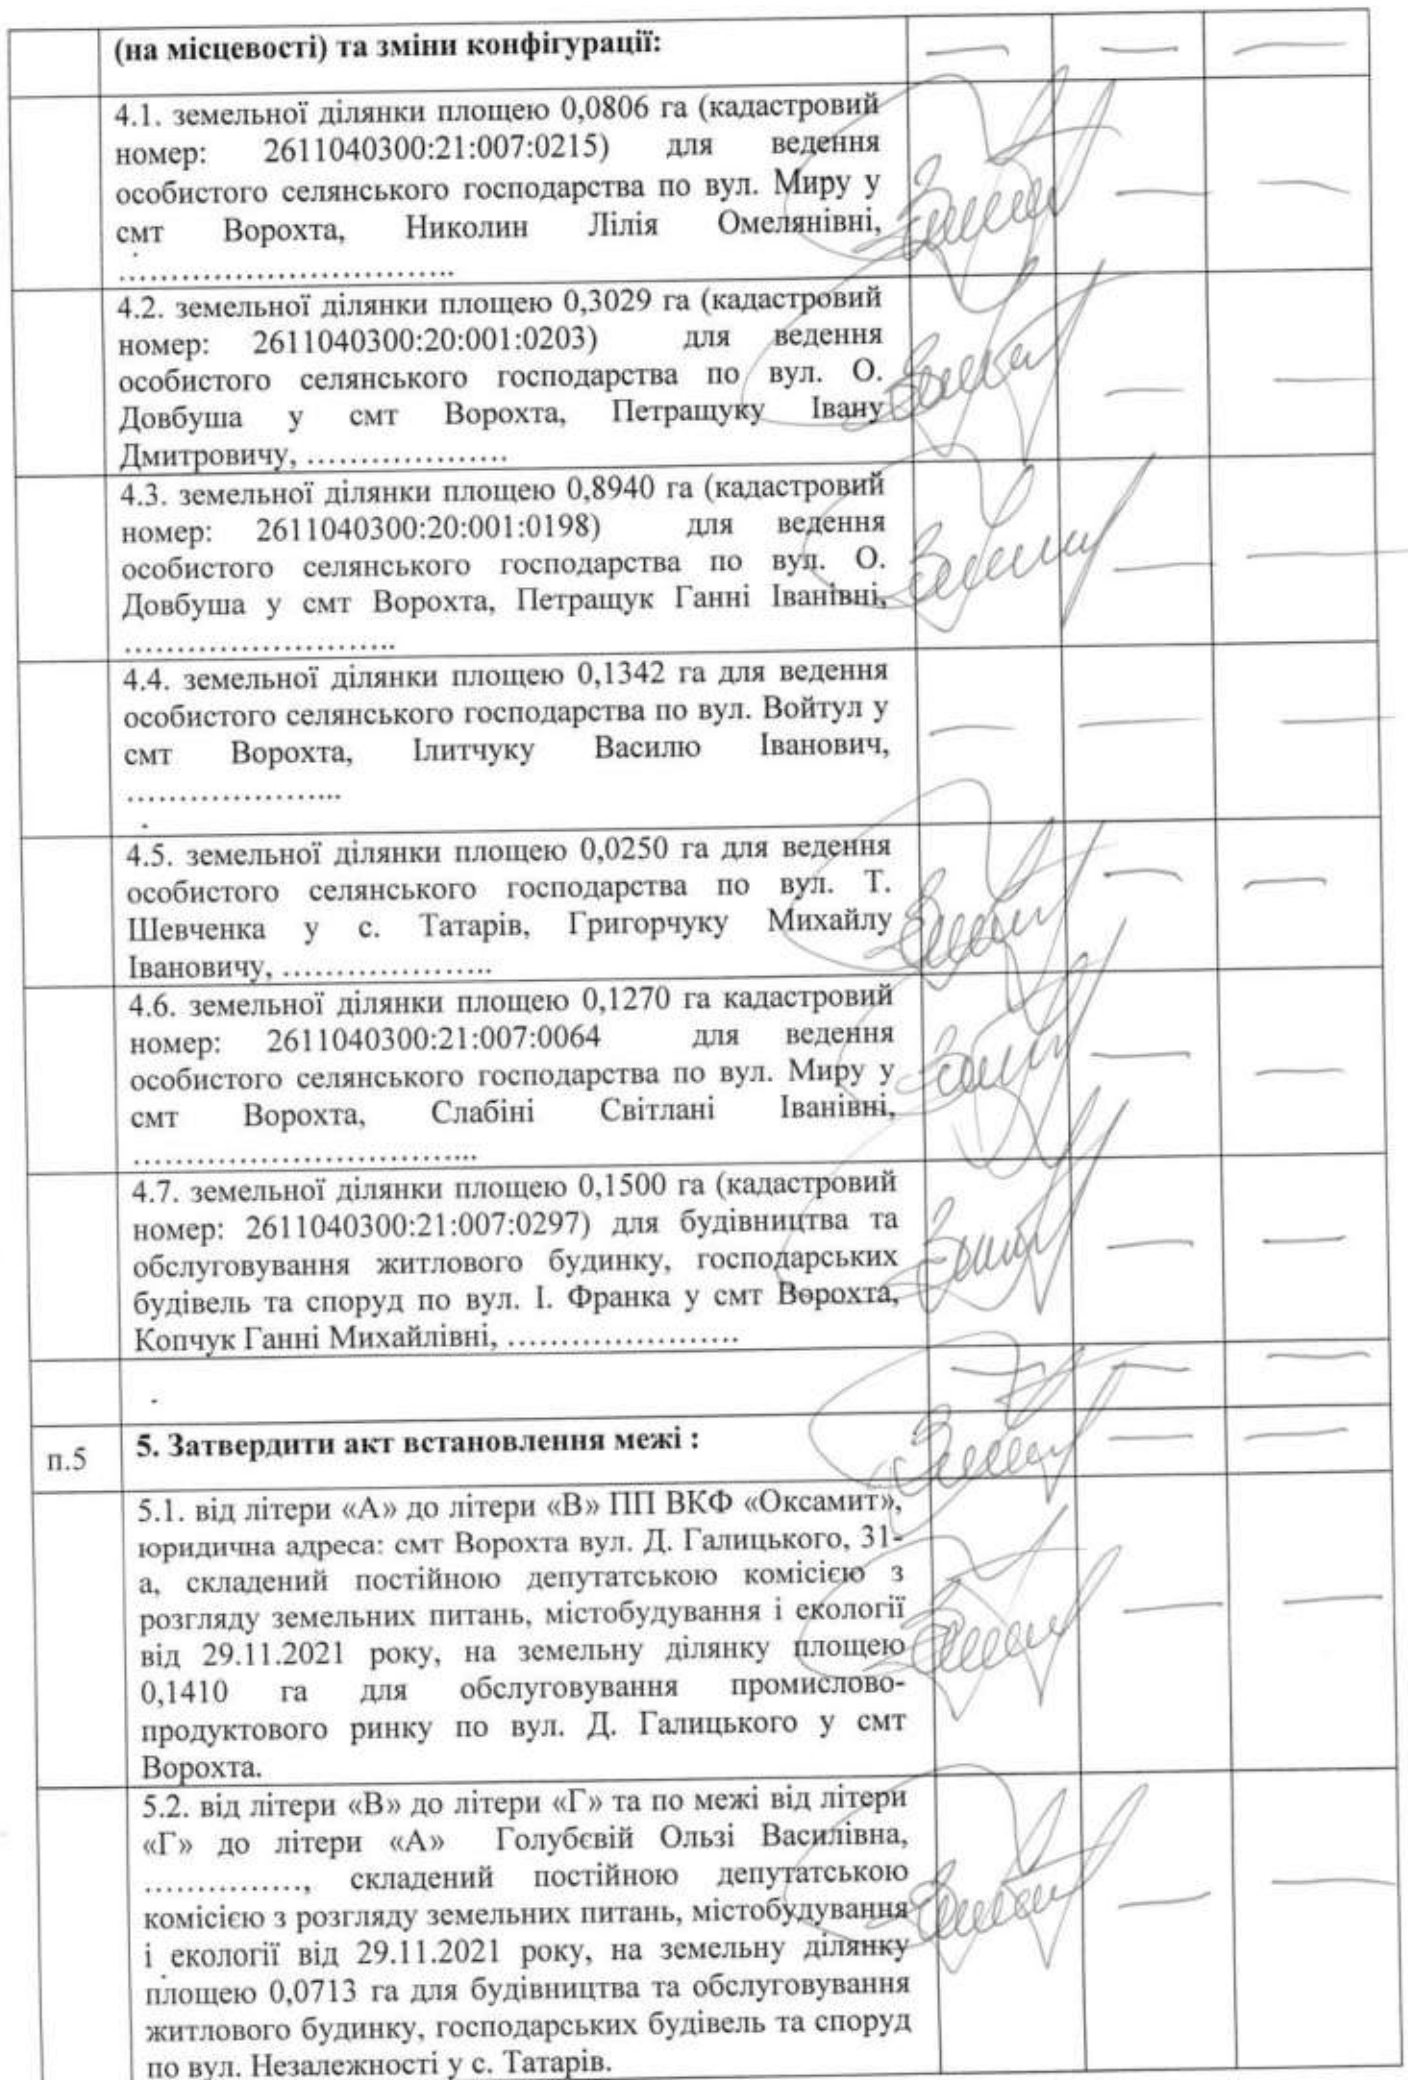 (на місцевості) та зміни конфігурації:
4.1. земельної ділянки площею 0,0806 га (кадастровий
номер: 2611040300:21:007:0215) для ведення
особистого селянського господарства по вул. Миру у
смт Ворохта, Николин Лілія Омелянівні,
……………………………..
4.2. земельної ділянки площею 0,3029 га (кадастровий
номер: 2611040300:20:001:0203) для ведення
особистого селянського господарства по вул. О.
Довбуша у смт Ворохта, Петращуку Івану
Дмитровичу, ………………….
4.3. земельної ділянки площею 0,8940 га (кадастровий
номер: 2611040300:20:001:0198) для ведення
особистого селянського господарства по вул. О.
Довбуша у смт Ворохта, Петращук Ганні Іванівні,
………………………..
4.4. земельної ділянки площею 0,1342 га для ведення
особистого селянського господарства по вул. Войтул у
смт Ворохта, Ілитчуку Василю Іванович,
…………………...
4.5. земельної ділянки площею 0,0250 га для ведення
особистого селянського господарства по вул. Т.
Шевченка у с. Татарів, Григорчуку Михайлу
Івановичу, ………………….
4.6. земельної ділянки площею 0,1270 га кадастровий
номер: 2611040300:21:007:0064 для ведення
особистого селянського господарства по вул. Миру у
смт Ворохта, Слабіні Світлані Іванівні,
……………………………...
4.7. земельної ділянки площею 0,1500 га (кадастровий
номер: 2611040300:21:007:0297) для будівництва та
обслуговування житлового будинку, господарських
будівель та споруд по вул. І. Франка у смт Ворохта,
Копчук Ганні Михайлівні, ……………………
п.5 5. Затвердити акт встановлення межі :
5.1. від літери «А» до літери «В» ПП ВКФ «Оксамит»,
юридична адреса: смт Ворохта вул. Д. Галицького, 31-
а, складений постійною депутатською комісією з
розгляду земельних питань, містобудування і екології
від 29.11.2021 року, на земельну ділянку площею
0,1410 га для обслуговування промислово-
продуктового ринку по вул. Д. Галицького у смт
Ворохта.
5.2. від літери «В» до літери «Г» та по межі від літери
«Г» до літери «А» Голубєвій Ользі Василівна,
……………., складений постійною депутатською
комісією з розгляду земельних питань, містобудування
і екології від 29.11.2021 року, на земельну ділянку
площею 0,0713 га для будівництва та обслуговування
житлового будинку, господарських будівель та споруд
по вул. Незалежності у с. Татарів.